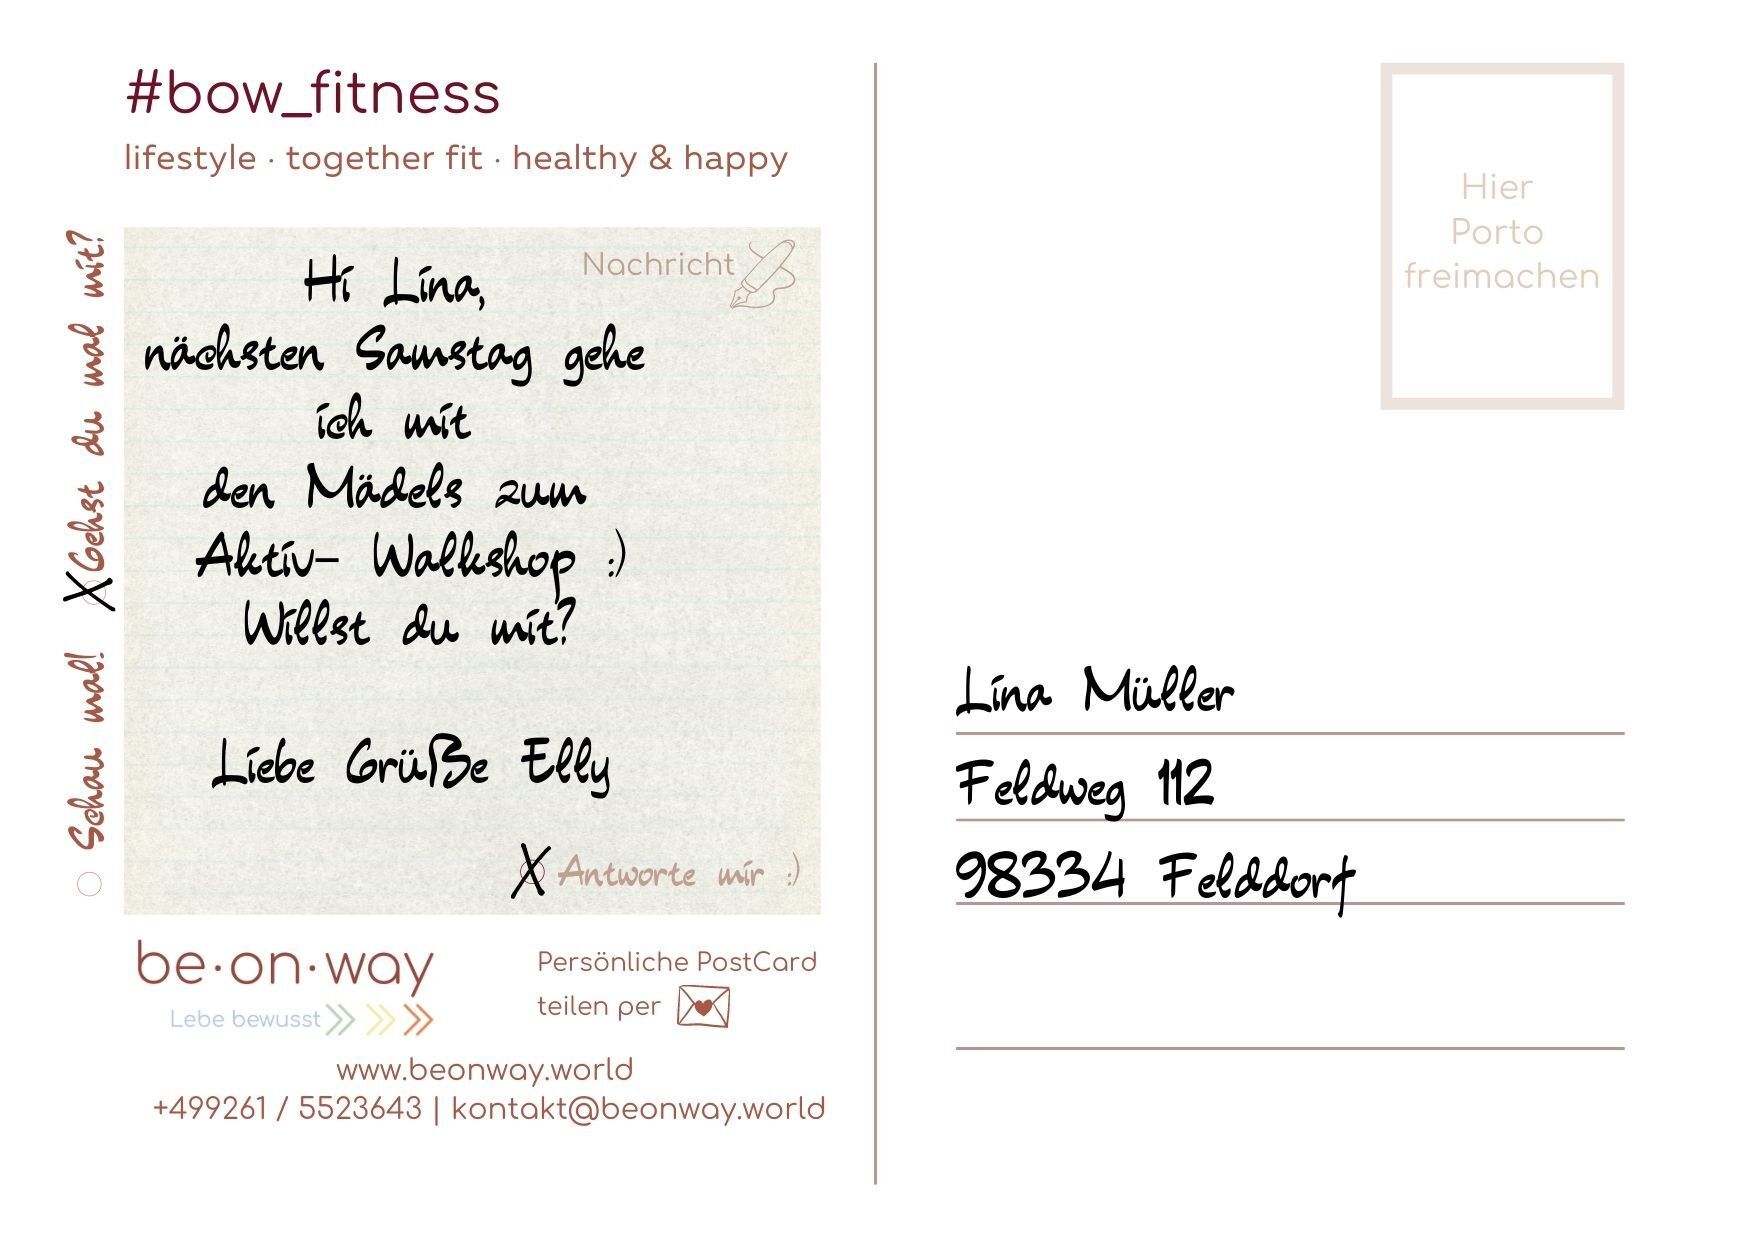 #bow_fitness
lifestyle · together fit · healthy & happy
Nachricht
Hi Lina,
nächsten Samstag gehe
ich mit
den Mädels zum
Aktiv- Walkshop :)
Willst du mit?
Liebe Grüße Elly
X Antworte mir :)
Schau mal!
X Gehst du mal mit?
be·on·way
Lebe bewusst
Persönliche PostCard
teilen per
www.beonway.world
+499261 / 5523643 | kontakt@beonway.world
Hier
Porto
freimachen
Lina Müller
Feldweg 112
98334 Felddorf